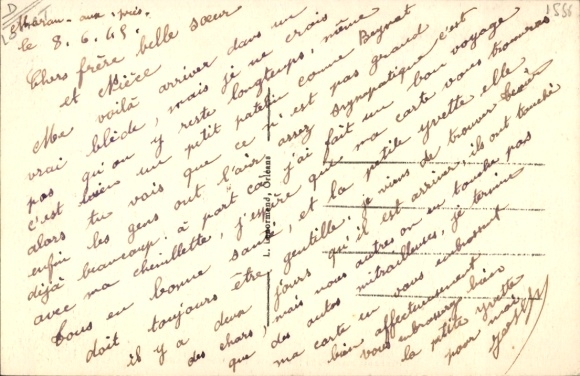 D
1586
le 8.6.45.
Chers frère belle sœur
et Nièce
Me voilà arriver dans un
vrai blède, mais je ne crois
pas qu'on y reste longtemps, même
c'est bien un petit patelin comme Beynat
alors tu vois que ce n'est pas grand
enfin les gens ont l'air assez sympatique c'est
déjà beaucoup. à part ça j'ai fait un bon voyage
avec ma chenillette, j'espère que ma carte vous trouveras
Tous en bonne santé, et la petite yvette elle
doit toujours être gentille. je viens de trouver
il y a deux jours qu'il est arriver, ils ont touché
des chars, mais nous autres on en touche pas
que des autos mitrailleuses, je termine
ma carte en vous embrassant
bien affectueusement
vous embrasserez bien
la petite yvette
pour moi
L. Lenormand, Orléans